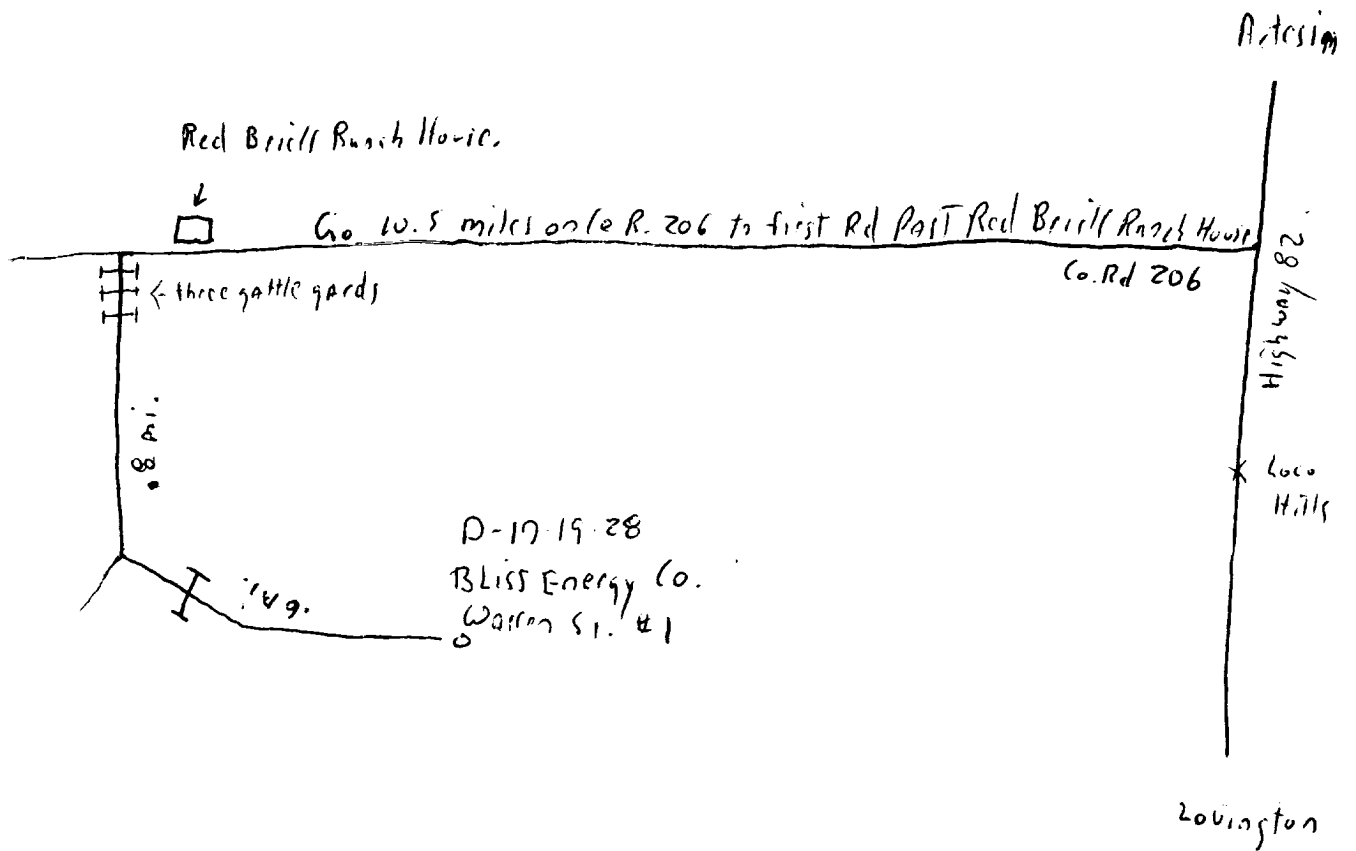 Artesia
Red Brill Ranch House.
Go 10.5 miles on Co R. 206 to first Rd Past Red Brill Ranch House
Co. Rd 206
Highway 82
← three cattle gards
.8 mi.
Loco
Hills
D-17-19-28
Bliss Energy Co.
Warren St. #1
Lovington